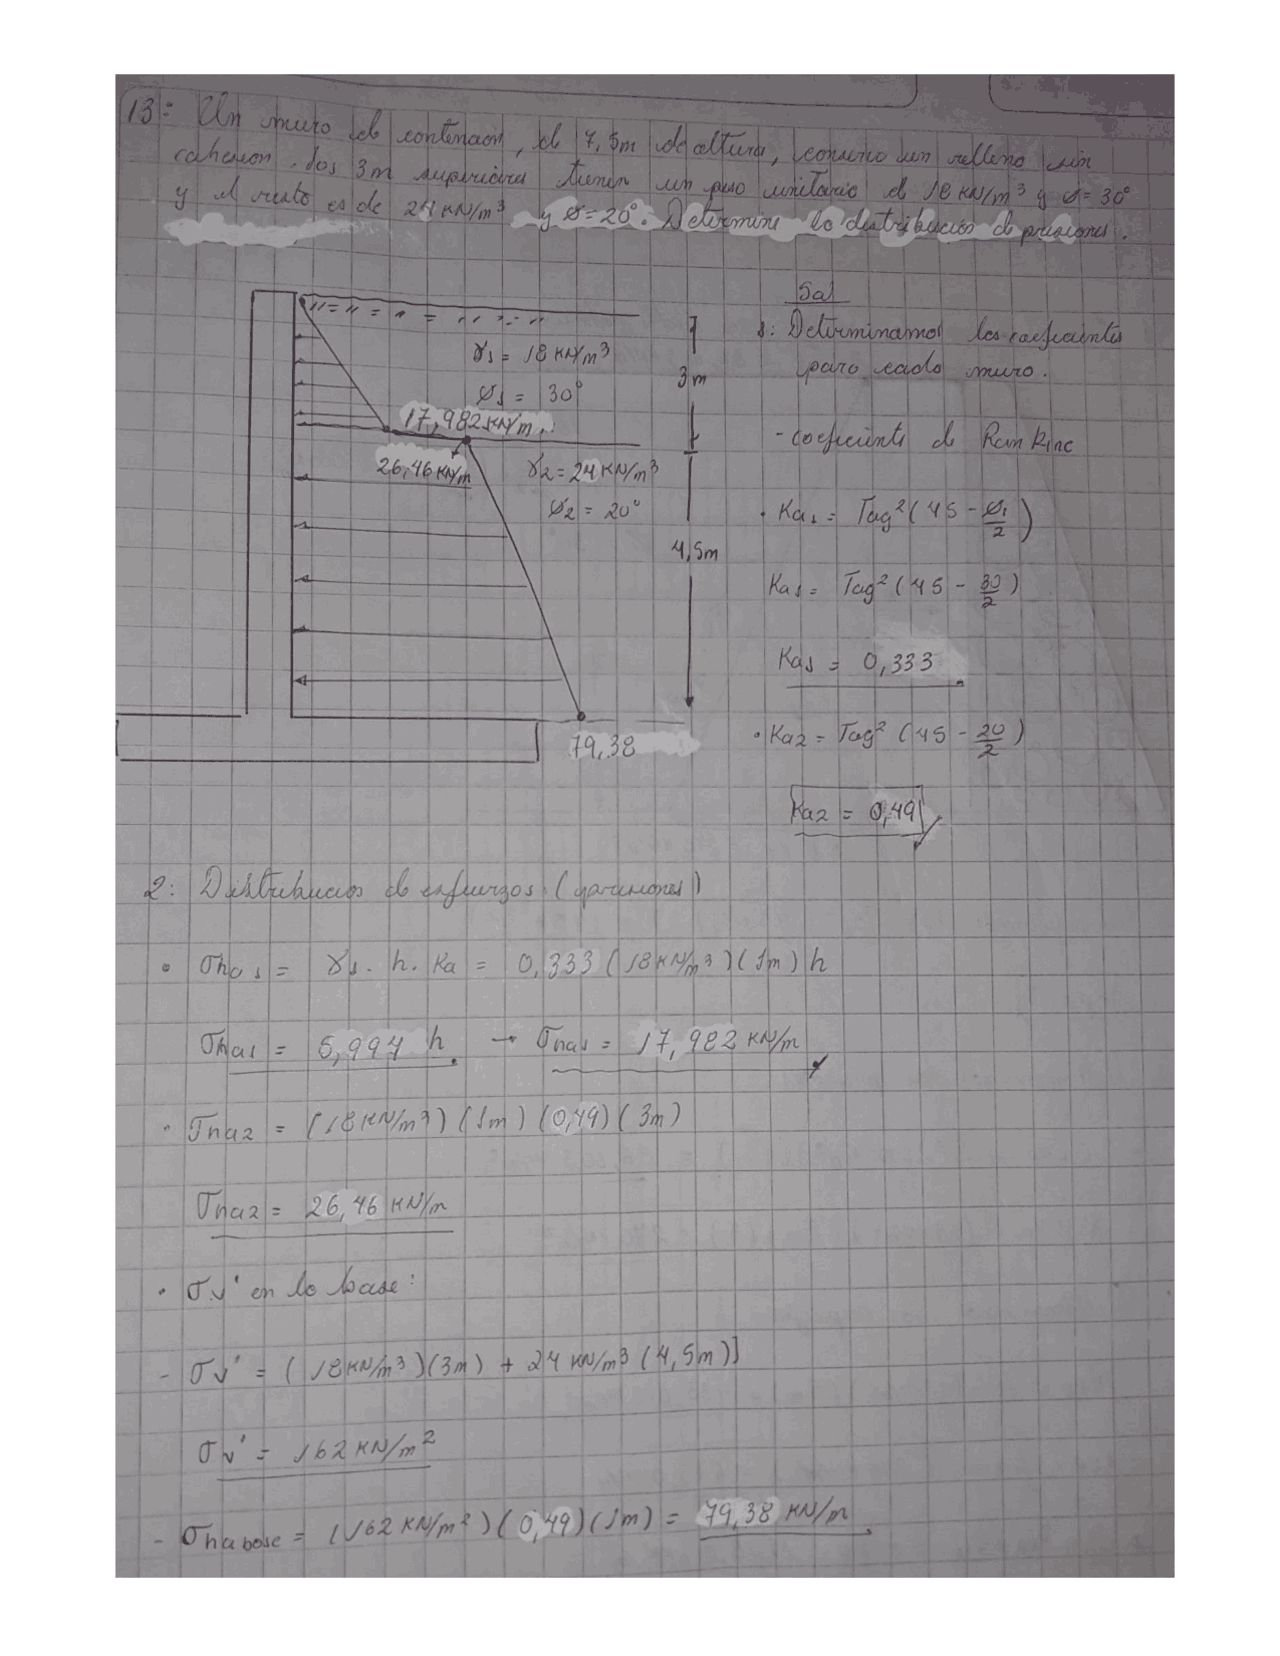 13: Un muro de contencion, de 7,5m de altura, contiene un relleno sin
cohesion. Los 3m superiores tienen un peso unitario de 18 KN/m³ y ø=30°
y el resto es de 24 KN/m³ y ø=20°. Determine la distribución de presiones.
Sol
γ1 = 18 KN/m³
ø1 = 30°
3m
1: Determinamos los coeficientes
para cada muro.
17,982 KN/m.
- coeficiente de RanKinc
26,46 KN/m
γ2 = 24 KN/m³
ø2 = 20°
4,5m
• Ka1 = Tag²(45 - ø1/2)
Ka1 = Tag²(45 - 30/2)
Ka1 = 0,333
79,38
• Ka2 = Tag² (45 - 20/2)
Ka2 = 0,49
2: Distribucion de esfuerzos (presiones)
• σha1 = γ1. h. Ka = 0,333 (18 KN/m³)(1m) h
σha1 = 5,994 h. → σha1 = 17,982 KN/m
• σha2 = (18 KN/m³) (1m) (0,49) (3m)
σha2 = 26,46 KN/m
• σv' en la base:
- σv' = (18 KN/m³)(3m) + 24 KN/m³ (4,5m)]
σv' = 162 KN/m²
- σha base = (162 KN/m²)(0,49)(1m) = 79,38 KN/m.